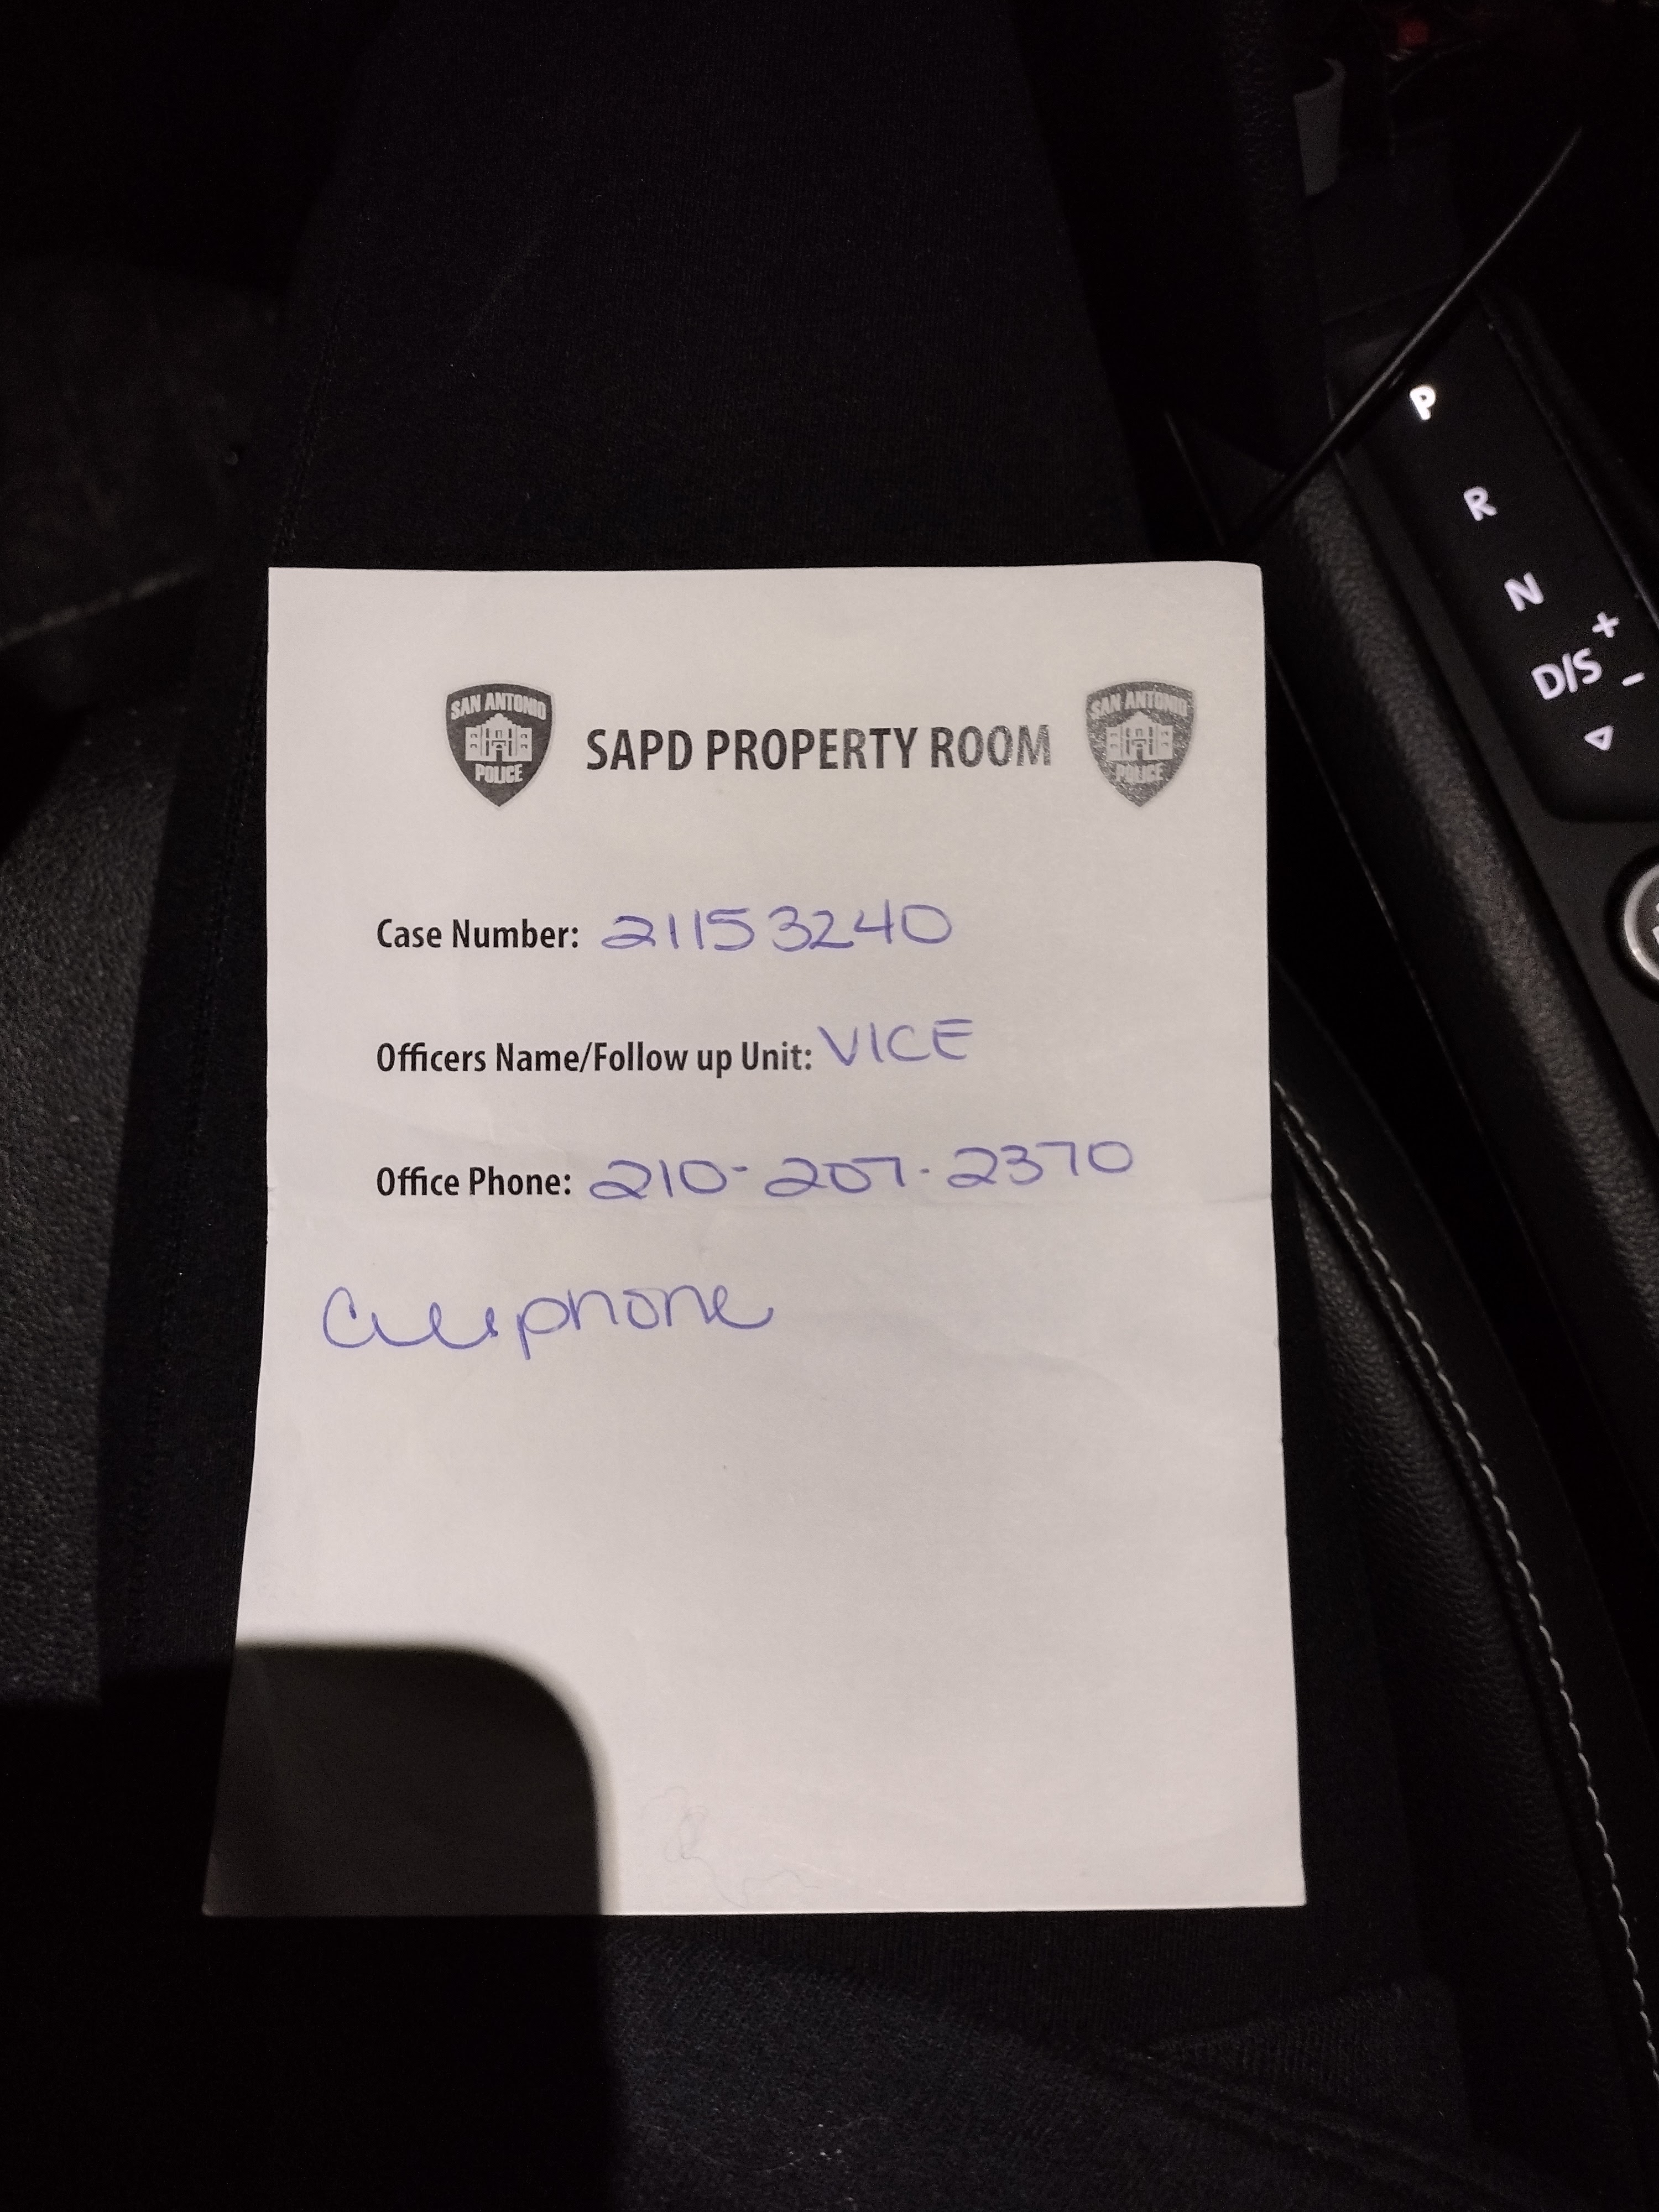 SAN ANTONIO
POLICE
SAPD PROPERTY ROOM
SAN ANTONIO
POLICE
Case Number: 21153240
Officers Name/Follow up Unit: VICE
Office Phone: 210-207-2370
Cellphone
P
R
N
+
D/S
-